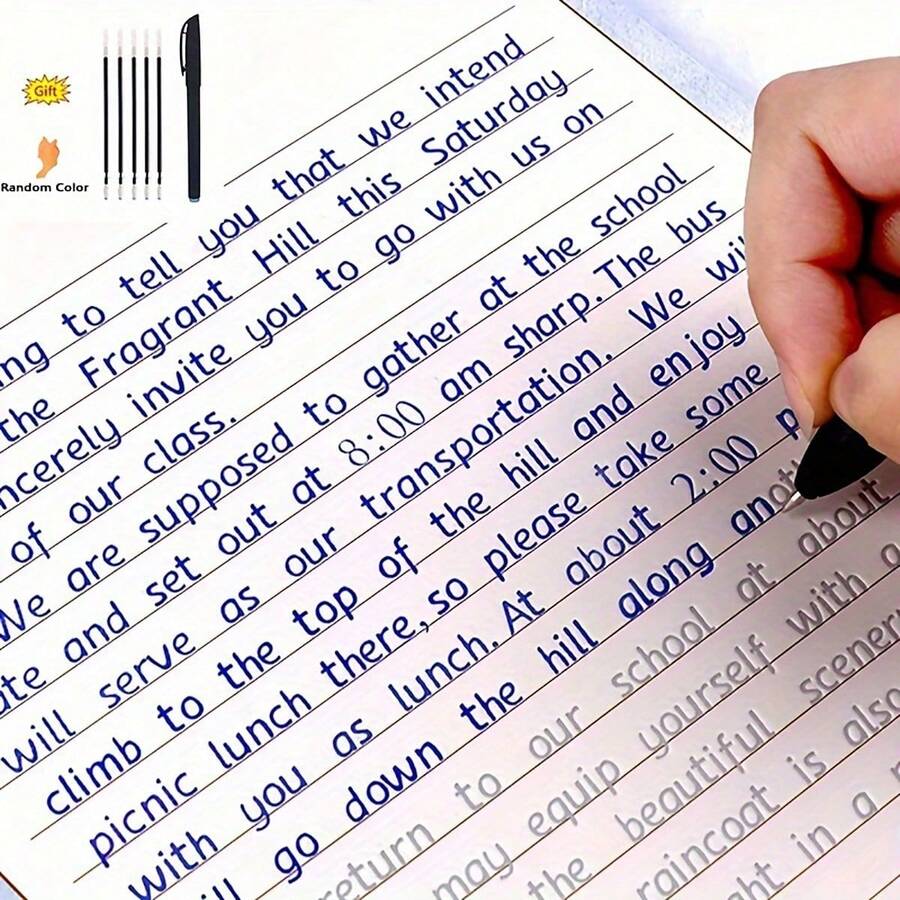 Gift
Random Color
ing to tell you that we intend
the Fragrant Hill this Saturday
ncerely invite you to go with us on
of our class.
We are supposed to gather at the school
ate and set out at 8:00 am sharp. The bus
will serve as our transportation. We wil
climb to the top of the hill and enjoy
picnic lunch there, so please take some
with you as lunch. At about 2:00 p
ill go down the hill along anot
return to our school at about
may equip yourself with a
the beautiful scenery
raincoat is also
ght in a